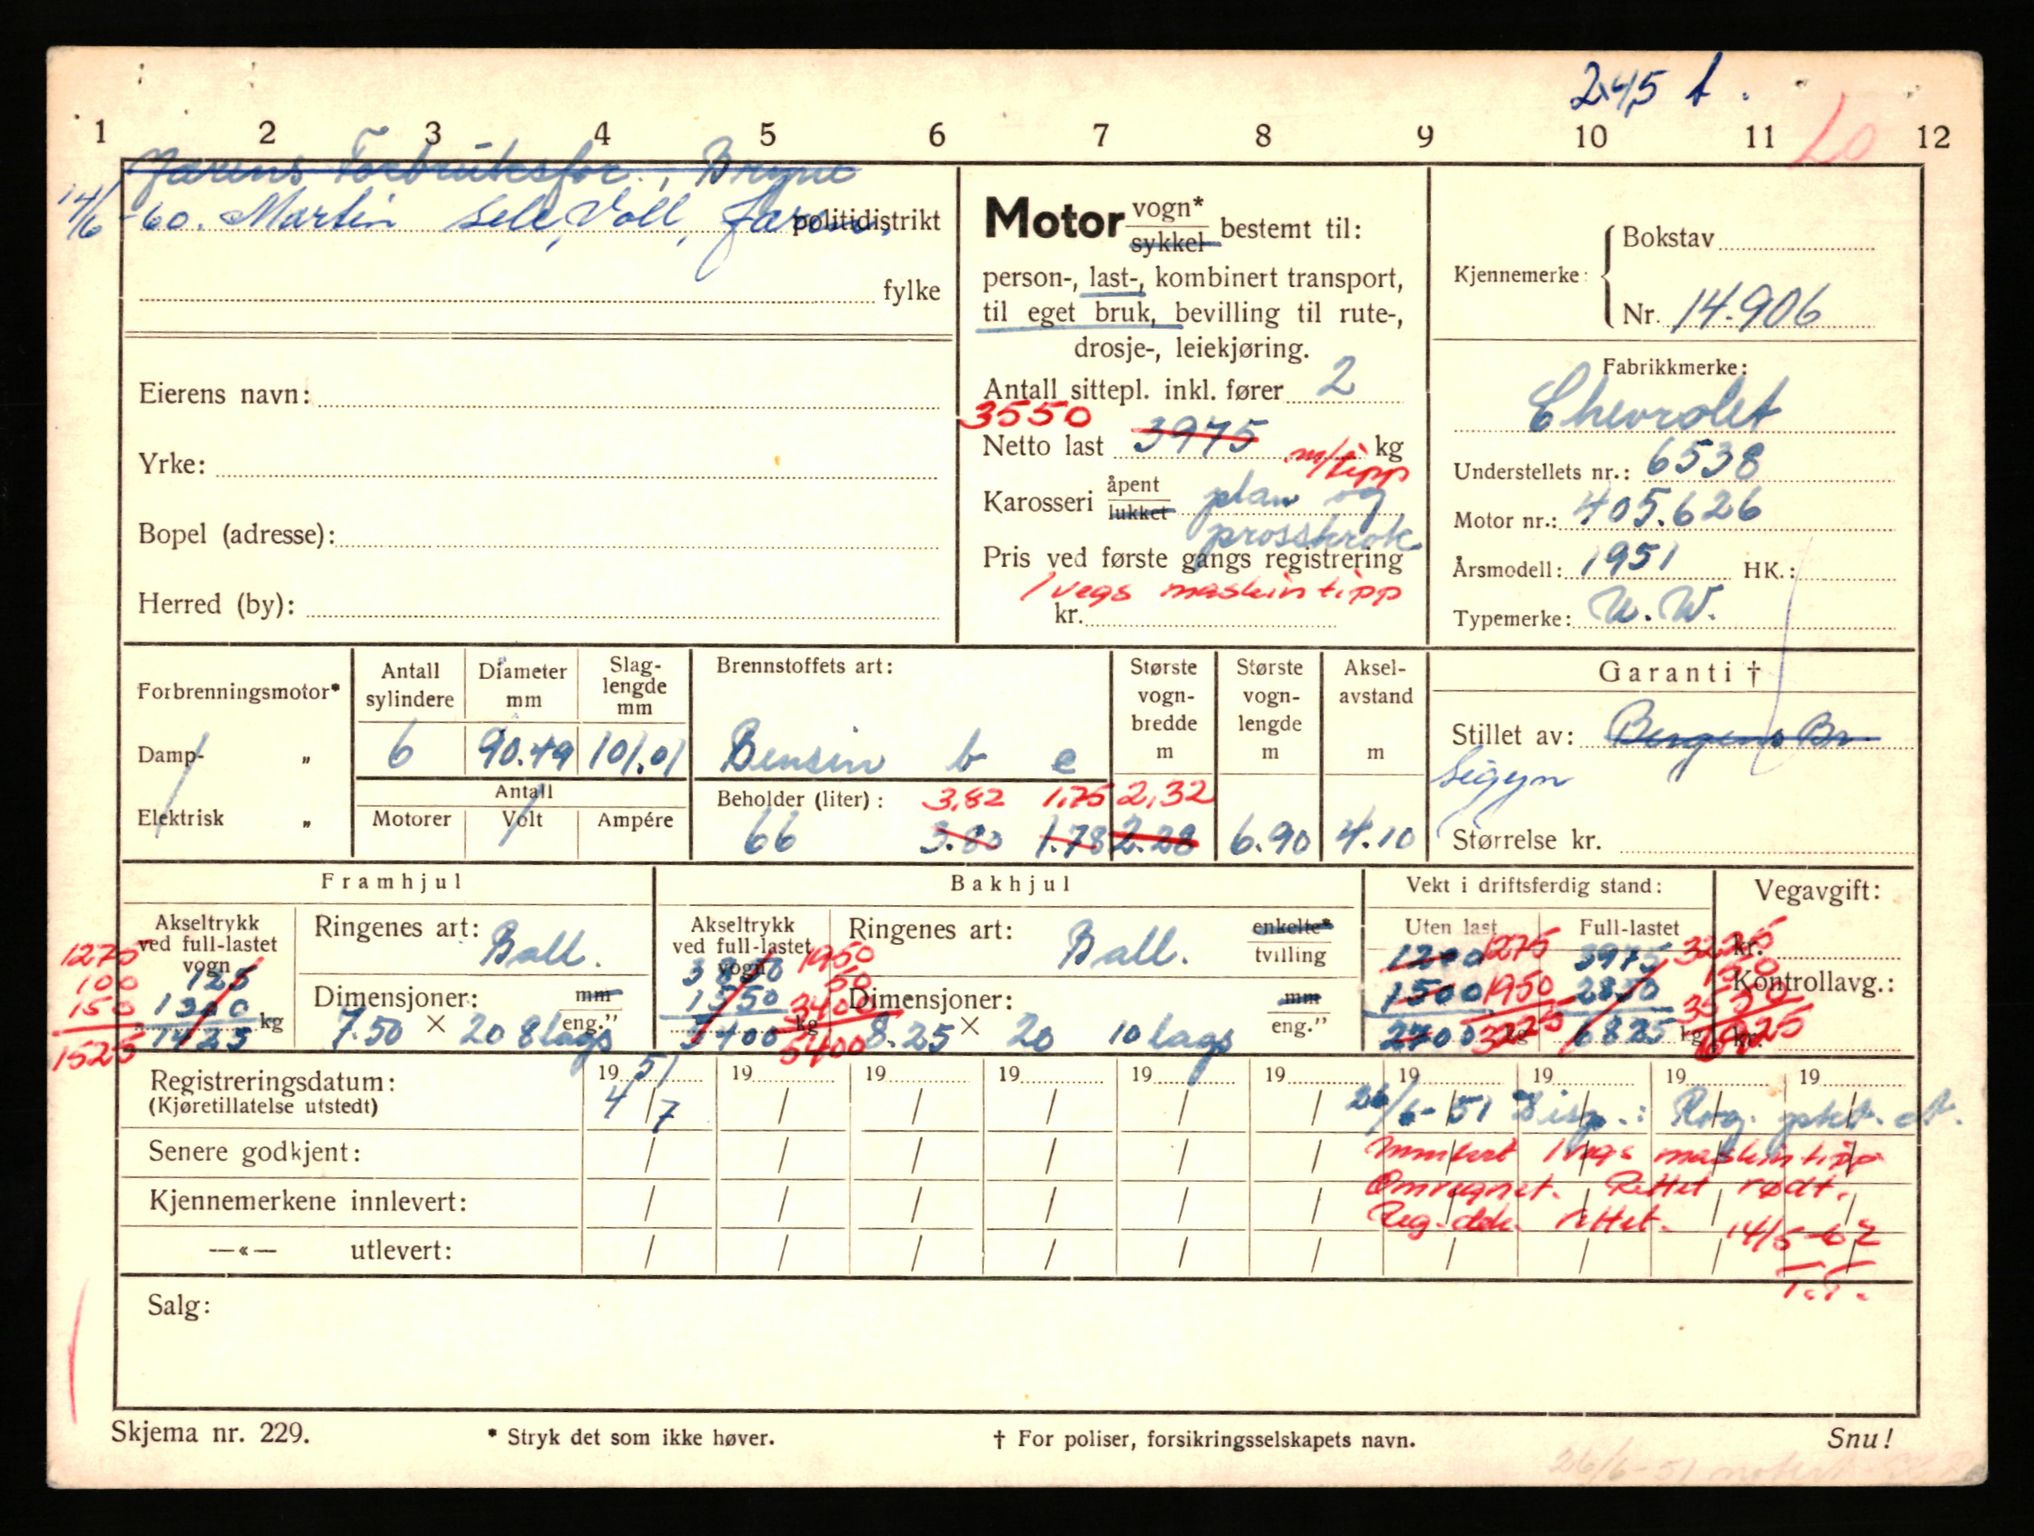 2,45 t.
1 2 3 4 5 6 7 8 9 10 11 12
Lo
Jærens Forbruksfor., Bryne
14/6-60. Martin Sele, Voll, Jæren. politidistrikt
fylke
Eierens navn:
Yrke:
Bopel (adresse):
Herred (by):
Motor vogn* sykkel bestemt til:
person-, last-, kombinert transport,
til eget bruk, bevilling til rute-,
drosje-, leiekjøring.
Antall sittepl. inkl. fører 2
3550
Netto last 3975 kg
m/tipp
Karosseri åpent lukket plan og
prosskrok
Pris ved første gangs registrering
1 vegs maskintipp
kr.
Kjennemerke: Bokstav
Nr. 14.906
Fabrikkmerke:
Chevrolet
Understellets nr.: 6538
Motor nr.: 405.626
Årsmodell: 1951 HK.:
Typemerke: U.W.
Forbrenningsmotor*
Damp- „
Elektrisk „
Antall sylindere
6
Diameter mm
90.49
Slag-lengde mm
101.01
Antall
Motorer Volt Ampére
Brennstoffets art:
Bensin b e
Beholder (liter): 3,82 1,75 2,32
66 3.80 1.78 2.28 6.90 4.10
Største vogn-bredde m
Største vogn-lengde m
Aksel-avstand m
Garanti †
Stillet av: Bergens Br
Sigyn
Størrelse kr.
Framhjul
Akseltrykk
ved full-lastet
vogn
125
1300 kg
1425
1275
100
150
1525
Ringenes art: Ball.
Dimensjoner: mm
7.50 × 20 8 lags eng.”
Bakhjul
Akseltrykk
ved full-lastet
vogn
3850
1550 kg
5400
1950
50
3400
5400
Ringenes art: Ball. enkelte* tvilling
Dimensjoner: mm
8.25 × 20 10 lags eng.”
Vekt i driftsferdig stand:
Uten last Full-lastet
1200 1275 3975 3225
1500 1950 2850 150
2700 3225 kg 6825 kg 3550
6925
Vegavgift:
kr.
Kontrollavg.:
kr.
Registreringsdatum: 1951 19 19 19 19 19 19 19 19 19
(Kjøretillatelse utstedt) 4/7
26/6-51 Disp.: Rog. pkt. et.
Senere godkjent:
Montert 1 vegs maskintipp
Kjennemerkene innlevert:
Omregnet. Rettet rødt.
Reg.-dok. rettet. 14/5-62
—«— utlevert:
T.T.
Salg:
Skjema nr. 229. * Stryk det som ikke høver. † For poliser, forsikringsselskapets navn. Snu!
26/6-51 notert